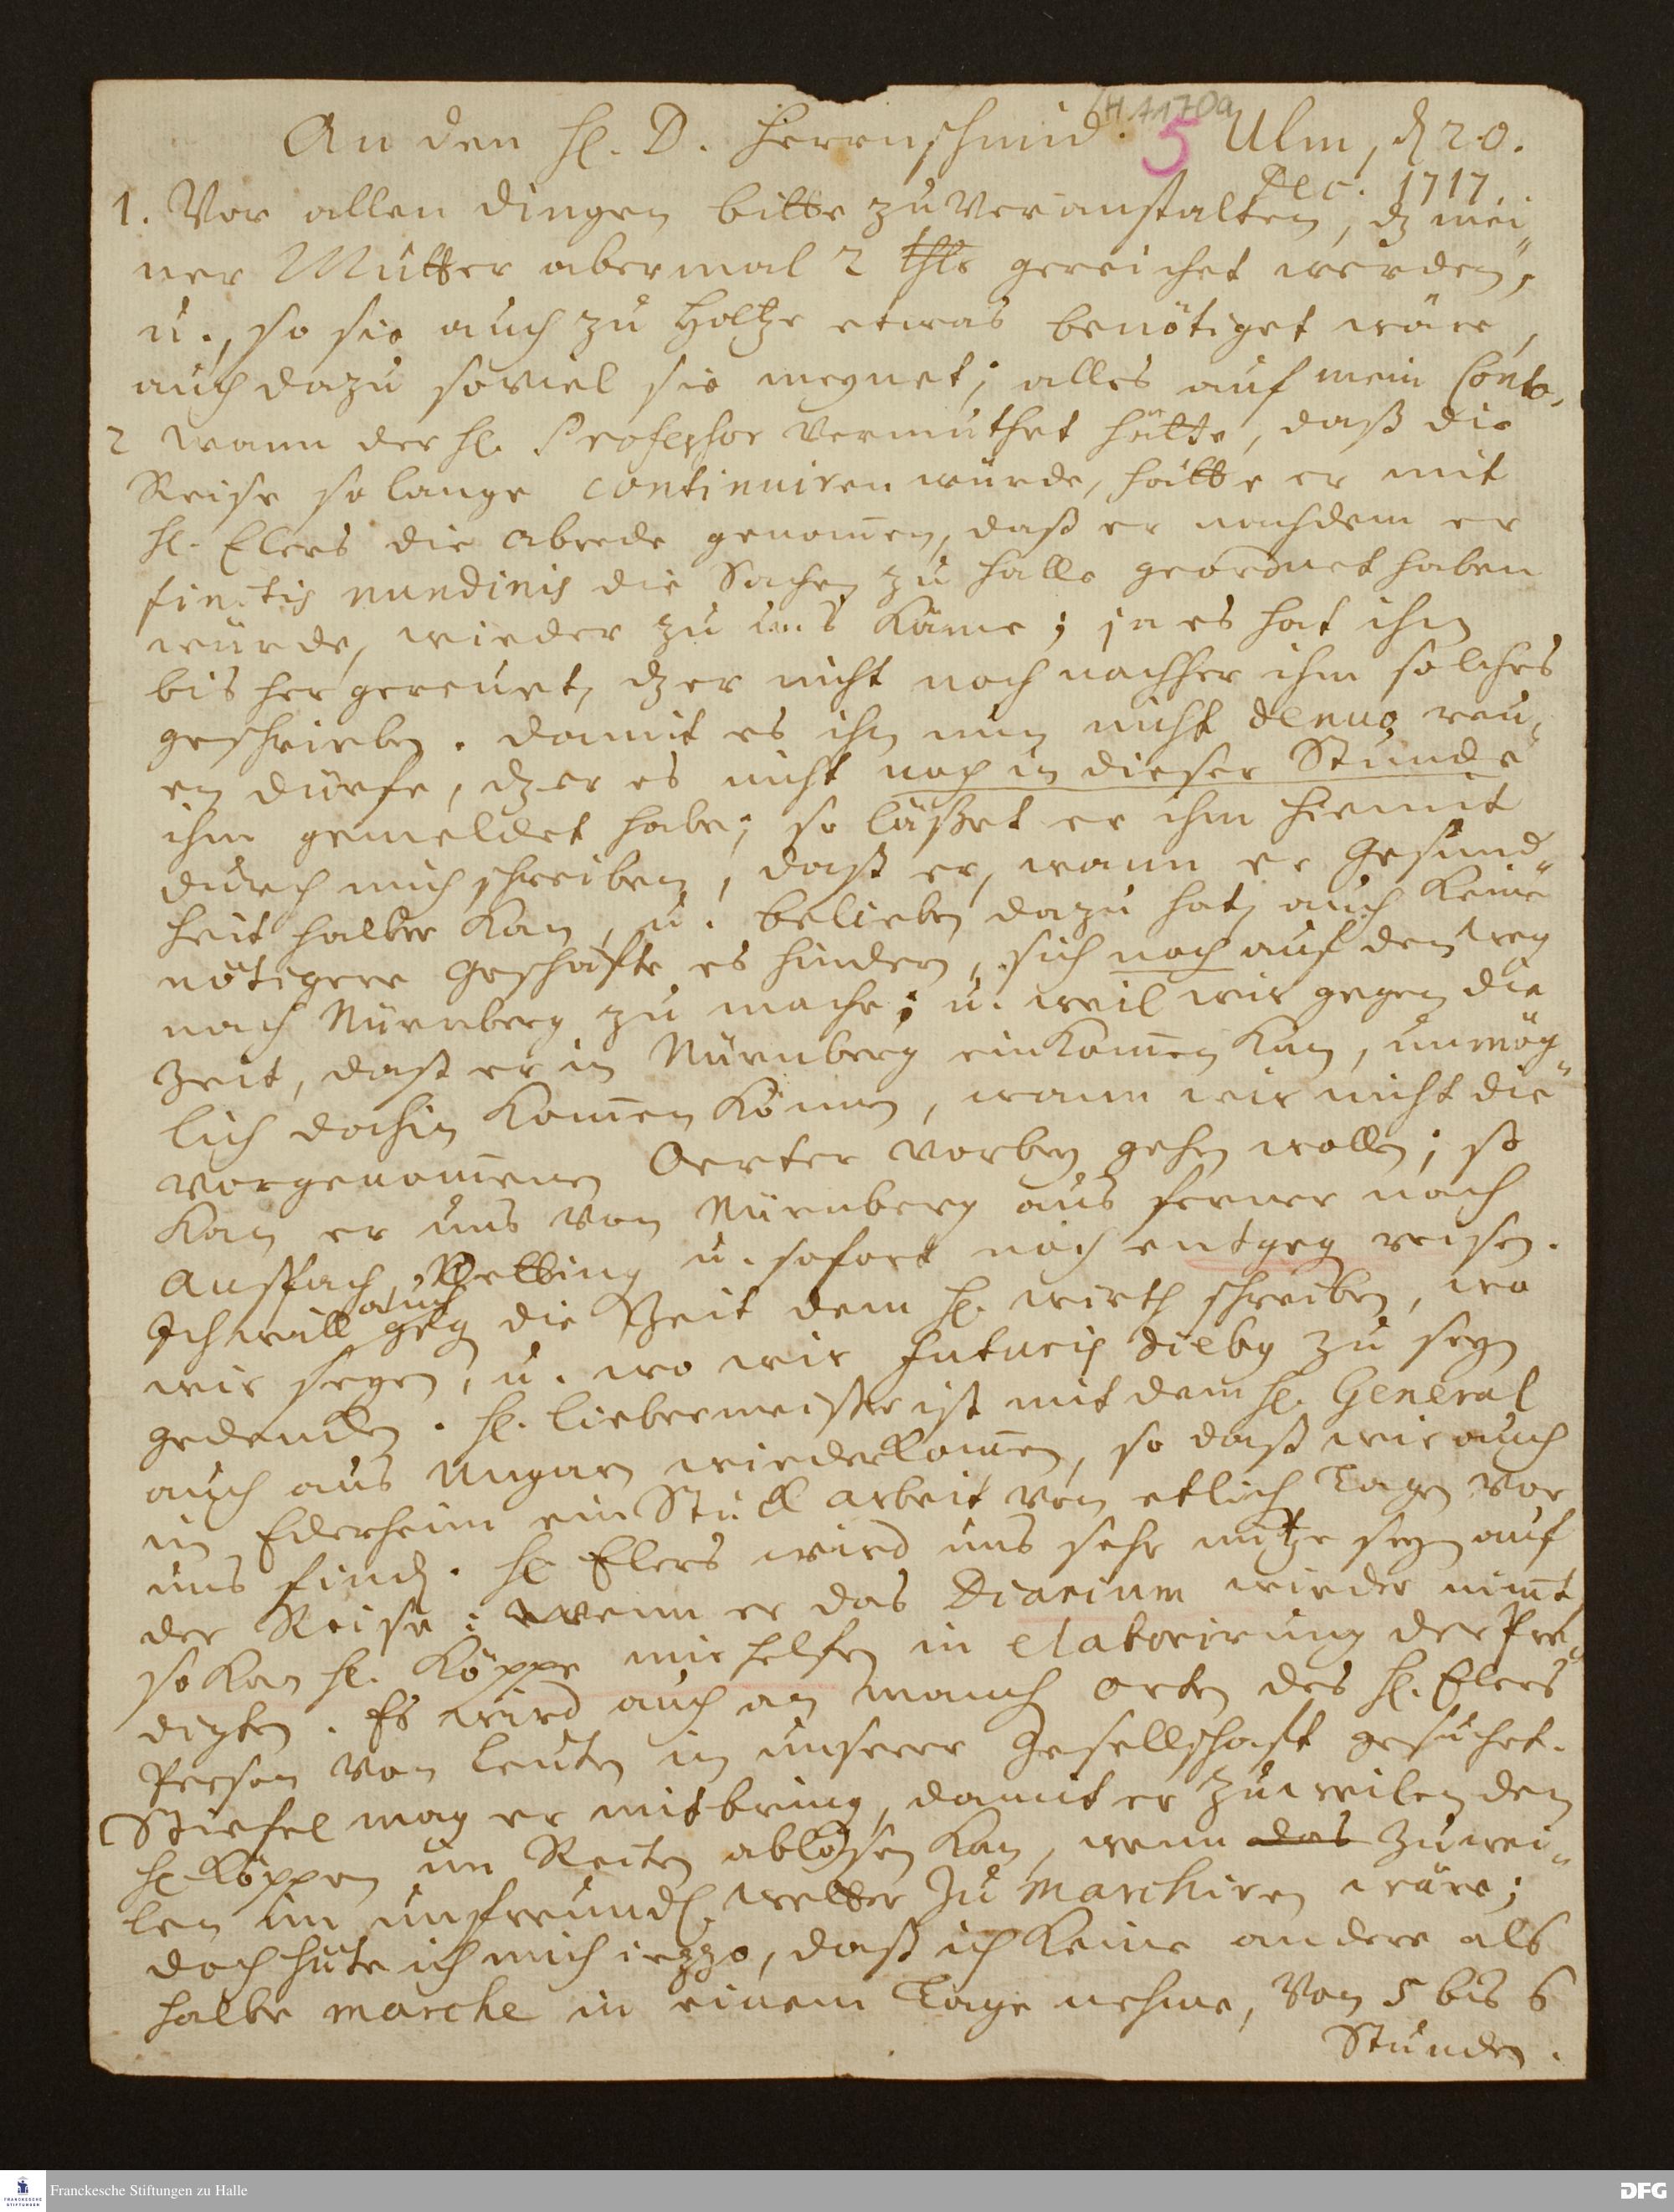 H A170a
An den H. D. Herrnschmid. 5 Ulm, d 20.
Dec. 1717.
1. Vor allen dingen bitte zu veranstalten, dz mei„
ner Mutter abermal 2 thlr gereichet werden,
u., so sie auch zu Holtze etwas benötiget wäre,
auch dazu soviel sie meynet; alles auf mein Conto.
2 wann der H. Professor vermuthet hätte, daß die
Reise so lange continuiren würde, hätte er mit
H. Elers die abrede genom̄en, daß er nachdem er
finitis nundinis die Sachen zu Halle geordnet haben
würde, wieder zu uns käme; ja es hat ihn
bisher gereuet, dz er nicht noch nachher ihm solches
geschrieben. damit es ihn nun nicht denuo reu„
en dürfe, dz er es nicht noch in dieser Stunde
ihm gemeldet habe; so läßet er ihm hiemit
durch mich schreiben, daß er, wann er Gesund„
heit halber kan, u. belieben dazu hat, auch keine
nötigere Geschäfte es hindern, sich noch auf den weg
nach Nürnberg zu mache; u. weil wir gegen die
Zeit, daß er in Nürnberg einkom̄en kan, unmög„
lich dahin kom̄en können, wann wir nicht die
vorgenom̄enen Oerter vorbey gehen wollen; so
kan er uns von Nürnberg aus ferner nach
Anspach, Oetting u. sofort noch entgeg reisen.
Ich will auch geg die Zeit dem H. Wirth schreiben, wo
wir seyen, u. wo wir futuris diebg zu seyn
gedencken. H. Liebermeister ist mit dem H. General
auch aus Ungarn wiederkom̄en, so daß wir auch
in Ederheim ein Stück arbeit von etlich Tagen vor
uns finden. H. Elers wird uns sehr nütze seyn auf
der Reise: wenn er das Diarium wieder nim̄t
so kan H. Köppe mir helfen in elaborirung der Pre„
digten. Es wird auch an manch orten des H. Elers
Person von Leuten in unserer Gesellschaft gesuchet.
Stiefel mag er mitbring, damit er zuweilen den
H. Köppen im Reiten ablösen kan, wenn das zuwei„
len im unfreundl. wetter zu marchiren wäre;
doch hüte ich mich iezzo, daß ich keine andere als
halbe marche in einem Tage nehme, von 5 bis 6
Stunden.
Franckesche Stiftungen zu Halle
DFG